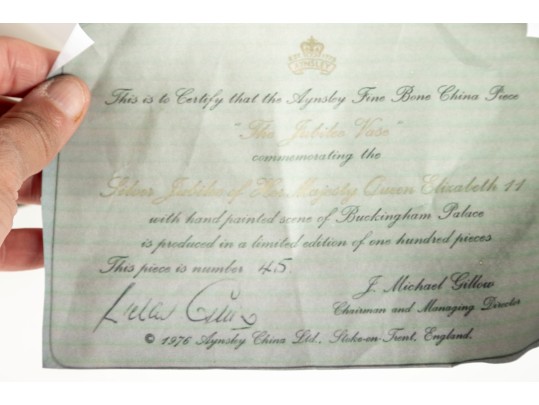 AYNSLEY
This is to Certify that the Aynsley Fine Bone China Piece
"The Jubilee Vase"
commemorating the
Silver Jubilee of Her Majesty Queen Elizabeth 11
with hand painted scene of Buckingham Palace
is produced in a limited edition of one hundred pieces
This piece is number 45
J. Michael Gillow
Chairman and Managing Director
© 1976 Aynsley China Ltd., Stoke-on-Trent, England.